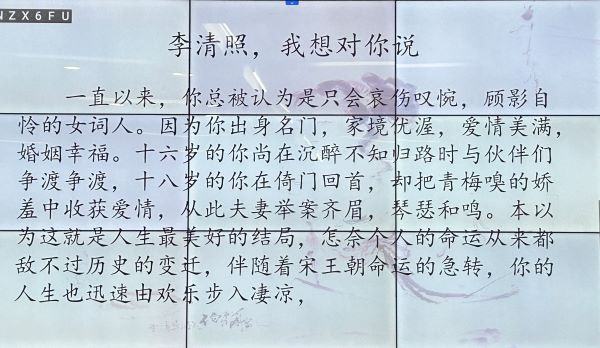 NZX6FU
李清照，我想对你说
一直以来，你总被认为是只会哀伤叹惋，顾影自
怜的女词人。因为你出身名门，家境优渥，爱情美满，
婚姻幸福。十六岁的你尚在沉醉不知归路时与伙伴们
争渡争渡，十八岁的你在倚门回首，却把青梅嗅的娇
羞中收获爱情，从此夫妻举案齐眉，琴瑟和鸣。本以
为这就是人生最美好的结局，怎奈个人的命运从来都
敌不过历史的变迁，伴随着宋王朝命运的急转，你的
人生也迅速由欢乐步入凄凉，